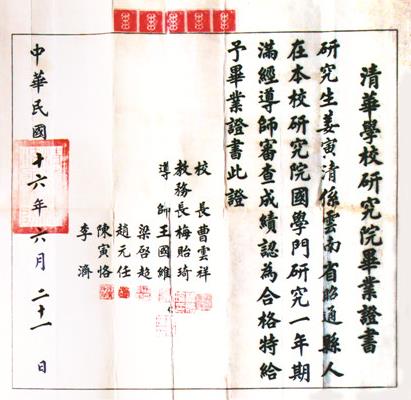 清華學校研究院畢業證書
研究生姜寅清係雲南省昭通縣人
在本校研究院國學門研究一年期
滿經導師審查成績認為合格特給
予畢業證書此證
校長曹雲祥
教務長梅貽琦
導師王國維
梁啓超
趙元任
陳寅恪
李濟
中華民國十六年六月二十一日